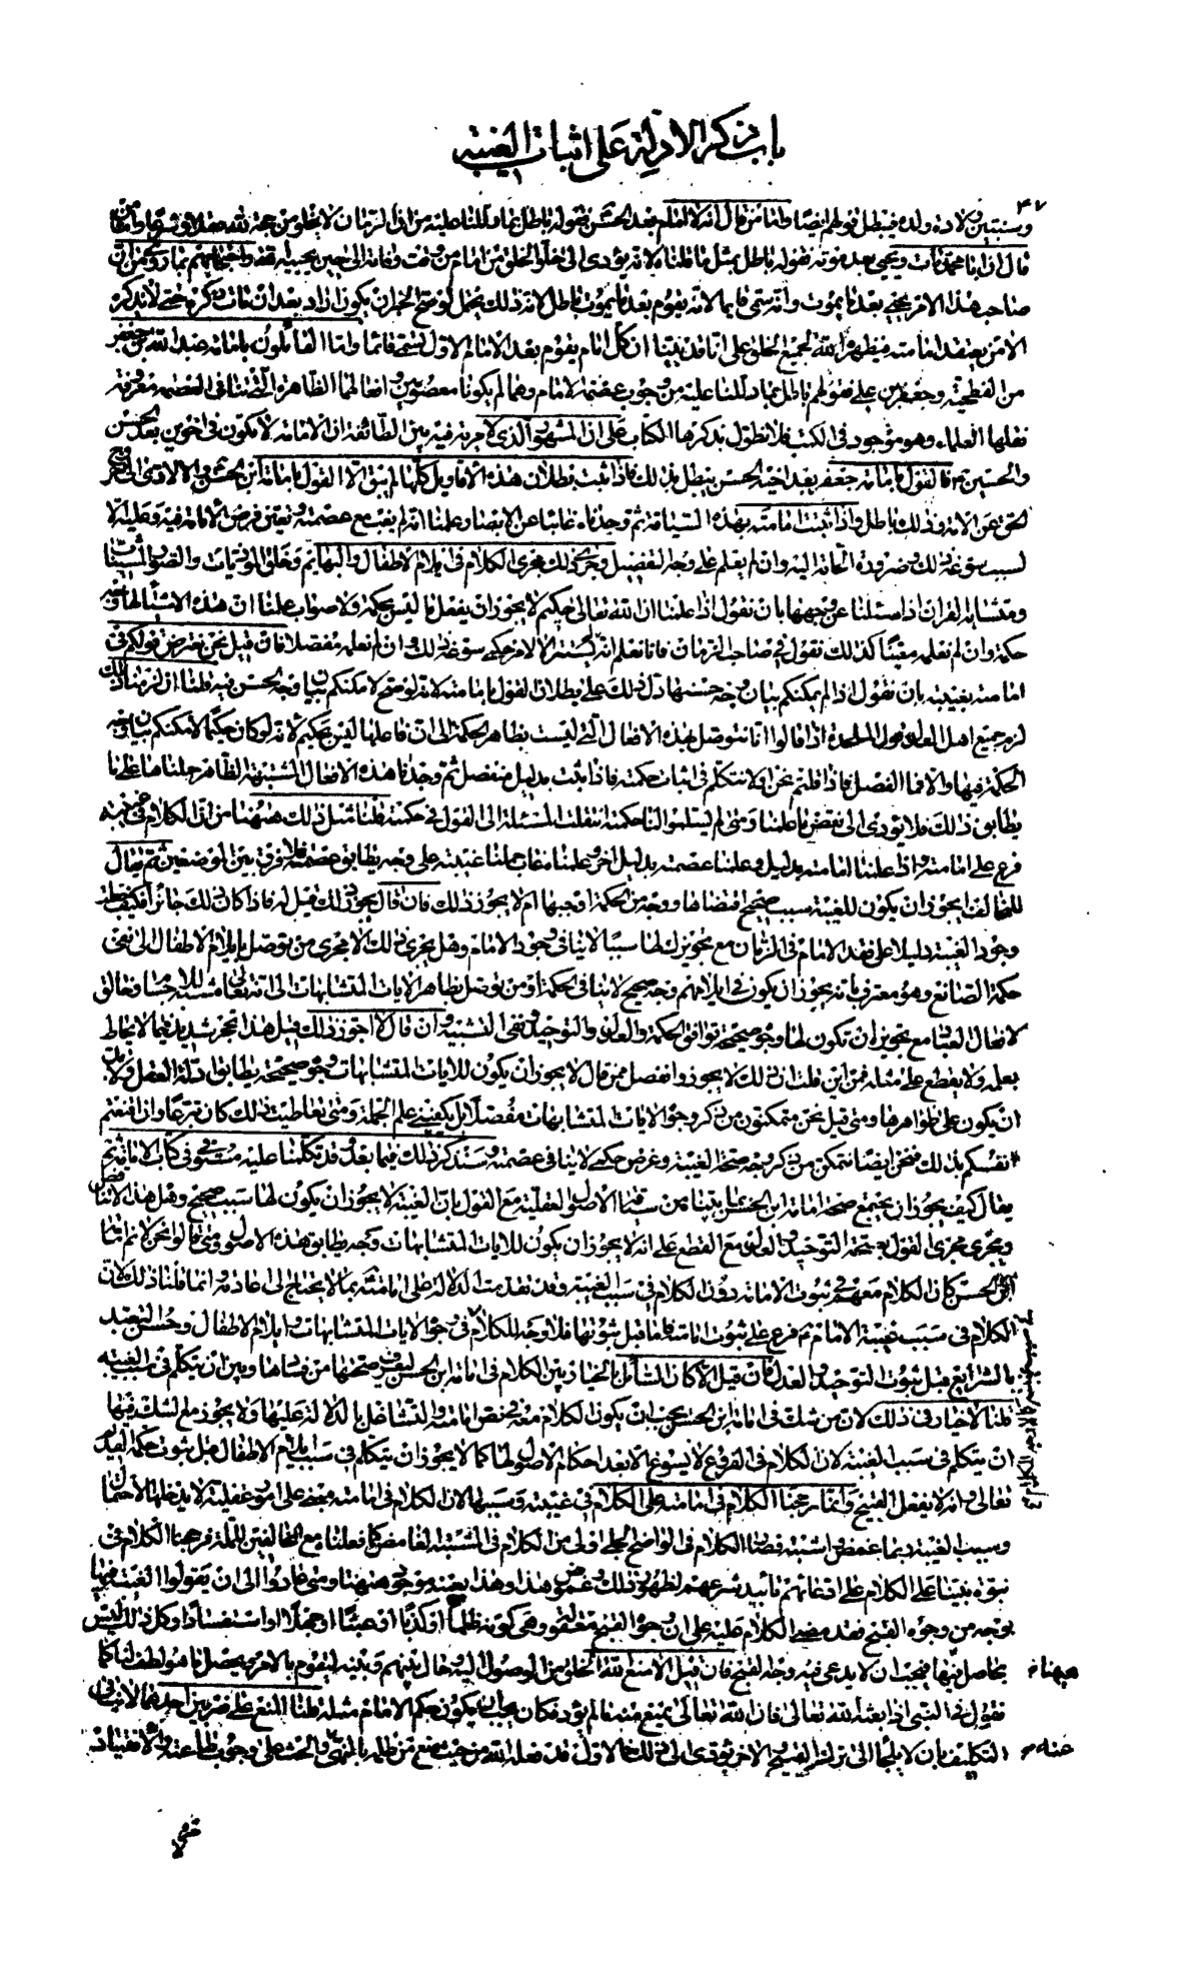 باب ذكر الادلة على اثبات الغيبة
٤٧
وسنبين ولادة ولده فيبطل قولهم ايضا واما من قال انه لا امام بعد الحسن فقوله باطل بما دللنا عليه من ان الزمان لا يخلو من حجة لله عقلا وشرعا واما من
قال ان ابا محمد مات ويحيى بعد موته فقوله باطل بمثل ما قلناه لانه يؤدى الى خلو الخلق من امام من وقت وفاته الى حين يحييه الله واحتجاجهم بما روى من ان
صاحب هذا الامر يحيى بعد ما يموت وانه سمى قائما لانه يقوم بعد ما يموت باطل لان ذلك يحتمل لو صح الخبر ان يكون اراد بعد ان مات ذكره حتى لا يذكره
الا من يعتقد امامته فيظهره الله لجميع الخلق على انا قد بينا ان كل امام يقوم بعد الامام الاول يسمى قائما واما القائلون بامامة عبد الله بن جعفر
من الفطحية وجعفر بن على فقولهم باطل بما دللنا عليه من وجوب عصمة الامام وهما لم يكونا معصومين وافعالهما الظاهرة التى تنافى العصمة معروفة
نقلها العلماء وهو موجود فى الكتب فلا نطول بذكرها الكتاب على ان المشهور الذى لا مرية فيه بين الطائفة ان الامامة لا تكون فى اخوين بعد الحسن
والحسين ع فالقول بامامة جعفر بعد اخيه الحسن يبطل بذلك فاذا ثبت بطلان هذه الاقاويل كلها لم يبق الا القول بامامة ابن الحسن والا لادى الى خروج
الحق عن الامة وذلك باطل واذا ثبت امامته بهذه السياقة ثم وجدناه غائبا عن الابصار علمنا انه لم يغب مع عصمته وتعين فرض الامامة فيه وعليه الا
لسبب سوغه ذلك وضرورة الجأته اليه وان لم يعلم على وجه التفصيل وجرى ذلك مجرى الكلام فى ايلام الاطفال والبهائم وخلق الموذيات والصور المشينات
ومتشابه القرآن اذا سئلنا عن وجهها بان نقول اذا علمنا ان الله تعالى حكيم لا يجوز ان يفعل ما ليس بحكمة ولا صواب علمنا ان هذه الاشياء لها وجه
حكمة وان لم نعلمه معينا كذلك نقول فى صاحب الزمان فانا نعلم انه لم يستتر الا لامر حكمى سوغه ذلك وان لم نعلمه مفصلا فان قيل نحن نعترض قولكم فى
امامته بغيبته بان نقول اذا لم يمكنكم بيان وجه حسنها دل ذلك على بطلان القول بامامته لانه لو صح لامكنكم بيان وجه الحسن فيه قلنا ان لزمنا ذلك
لزم جميع اهل العدل قول الملحدة اذا قالوا انا نتوصل بهذه الافعال التى ليست بظاهر الحكمة الى ان فاعلها ليس بحكيم لانه لو كان حكيما لامكنكم بيان وجه
الحكمة فيها والا فما الفصل فاذا قلتم نحن اولا نتكلم فى اثبات حكمته فاذا ثبت بدليل منفصل ثم وجدنا هذه الافعال المشتبهة الظاهر حملناها على ما
يطابق ذلك فلا يؤدى الى نقض ما علمنا ومتى لم يسلموا لنا حكمته انتقلت المسئلة الى القول فى حكمته قلنا مثل ذلك هيهنا من ان الكلام فى غيبته
فرع على امامته واذا علمنا امامته بدليل وعلمنا عصمته بدليل آخر وعلمناه غاب حملنا غيبته على وجه يطابق عصمته فلا فرق بين الموضعين ثم يقال
للمخالف ايجوز ان يكون للغيبة سبب صحيح اقتضاها ووجه من الحكمة اوجبها ام لا يجوز ذلك فان قال يجوز ذلك قيل له فاذا كان ذلك جائزا فكيف جعلت
وجود الغيبة دليلا على فقد الامام فى الزمان مع تجويزك لها سببا لا ينافى وجود الامام وهل يجرى ذلك الا مجرى من توصل بايلام الاطفال الى نفى
حكمة الصانع وهو معترف بانه يجوز ان يكون فى ايلامهم وجه صحيح لا ينافى الحكمة او من توصل بظاهر الايات المتشابهات الى انه تعالى مشبه للاجسام وخالق
لافعال العباد مع تجويز ان تكون لها وجوه صحيحة توافق الحكمة والعدل والتوحيد ونفى التشبيه وان قال لا اجوز ذلك قيل هذا تحجر شديد فيما لا يحاط
بعلمه ولا يقطع على مثله فمن اين قلت ان ذلك لا يجوز وانفصل ممن قال لا يجوز ان يكون للايات المتشابهات وجوه صحيحة يطابق ادلة العقل ولا بد
ان يكون على ظواهرها ومتى قيل نحن متمكنون من ذكر وجوه الايات المتشابهات مفصلا بل يكفينى علم الجملة ومتى تعاطيت ذلك كان تبرعا وان اقنعتم
نفسكم بذلك فنحن ايضا نتمكن من ذكر وجه صحة الغيبة وغرض حكمى لا ينافى عصمته وسنذكر ذلك فيما بعد وقد تكلمنا عليه مستوفى فى كتاب الامامة ثم
يقال كيف يجوز ان يجتمع صحة امامة ابن الحسن بما بينا من سياقة الاصول العقلية مع القول بان الغيبة لا يجوز ان يكون لها سبب صحيح وهل هذا الا تناقض
ويجرى مجرى القول بصحة التوحيد والعدل مع القطع على انه لا يجوز ان يكون للايات المتشابهات وجه يطابق هذه الاصول ومتى قالوا نحن لا نسلم امامة
ابن الحسن كان الكلام معهم فى ثبوت الامامة دون الكلام فى سبب الغيبة وقد تقدمت الدلالة على امامته بما لا يحتاج الى اعادته وانما قلنا ذلك لان
الكلام فى سبب غيبة الامام ع فرع على ثبوت امامته فاما قبل ثبوتها فلا وجه للكلام فى وجوه الايات المتشابهات وايلام الاطفال وحسن التعبد
بالشرايع قبل ثبوت التوحيد والعدل فان قيل الا كان السائل بالخيار بين الكلام فى امامة ابن الحسن ليعرف صحتها من فسادها وبين ان يتكلم فى سبب الغيبة
قلنا لا خيار فى ذلك لان من شك فى امامة ابن الحسن يجب ان يكون الكلام معه فى نص امامته والتشاغل بالدلالة عليها ولا يجوز مع الشك فيها
ان يتكلم فى سبب الغيبة لان الكلام فى الفروع لا يسوغ الا بعد احكام الاصول لها كما لا يجوز ان يتكلم فى سبب ايلام الاطفال قبل ثبوت حكمة القديم
تعالى وانه لا يفعل القبيح وانما رجحنا الكلام فى امامته على الكلام فى غيبته وسببها لان الكلام فى امامته مبنى على امور عقلية لا يدخلها الاحتمال
وسبب الغيبة ربما غمض واشتبه فصار الكلام فى الواضح الجلى اولى من الكلام فى المشتبه الغامض كما فعلناه مع المخالفين للملة فرجحنا الكلام فى
نبوة نبينا على الكلام على ادعائهم تأبيد شرعهم لظهور ذلك وغموض هذا وهذا بعينه موجود هيهنا ومتى عادوا الى ان يقولوا الغيبة فيها
وجه من وجوه القبح فقد مضى الكلام عليه على ان وجوه القبح معقولة وهى كونه ظلما او كذبا او عبثا او جهلا او استفسادا وكل ذلك ليس
بحاصل فيها فيجب ان لا يدعى فيه وجه القبح فان قيل الا منع الله الخلق من الوصول اليه وحال بينهم وبينه ليقوم بالامر ويحصل ما هو لطف لنا كما
هيهنا
نقول فى النبى اذا بعثه الله تعالى فان الله تعالى يمنع منه ما لم يؤد فكان يجب ان يكون حكم الامام مثله قلنا المنع على ضربين احدهما لا ينافى
التكليف بان لا يلجأ الى ترك القبيح والاخر يؤدى الى ذلك فالاول قد فعله الله من حيث منع من ظلمه بالنهى عنه والحث على وجوب طاعته والانقياد
عنه